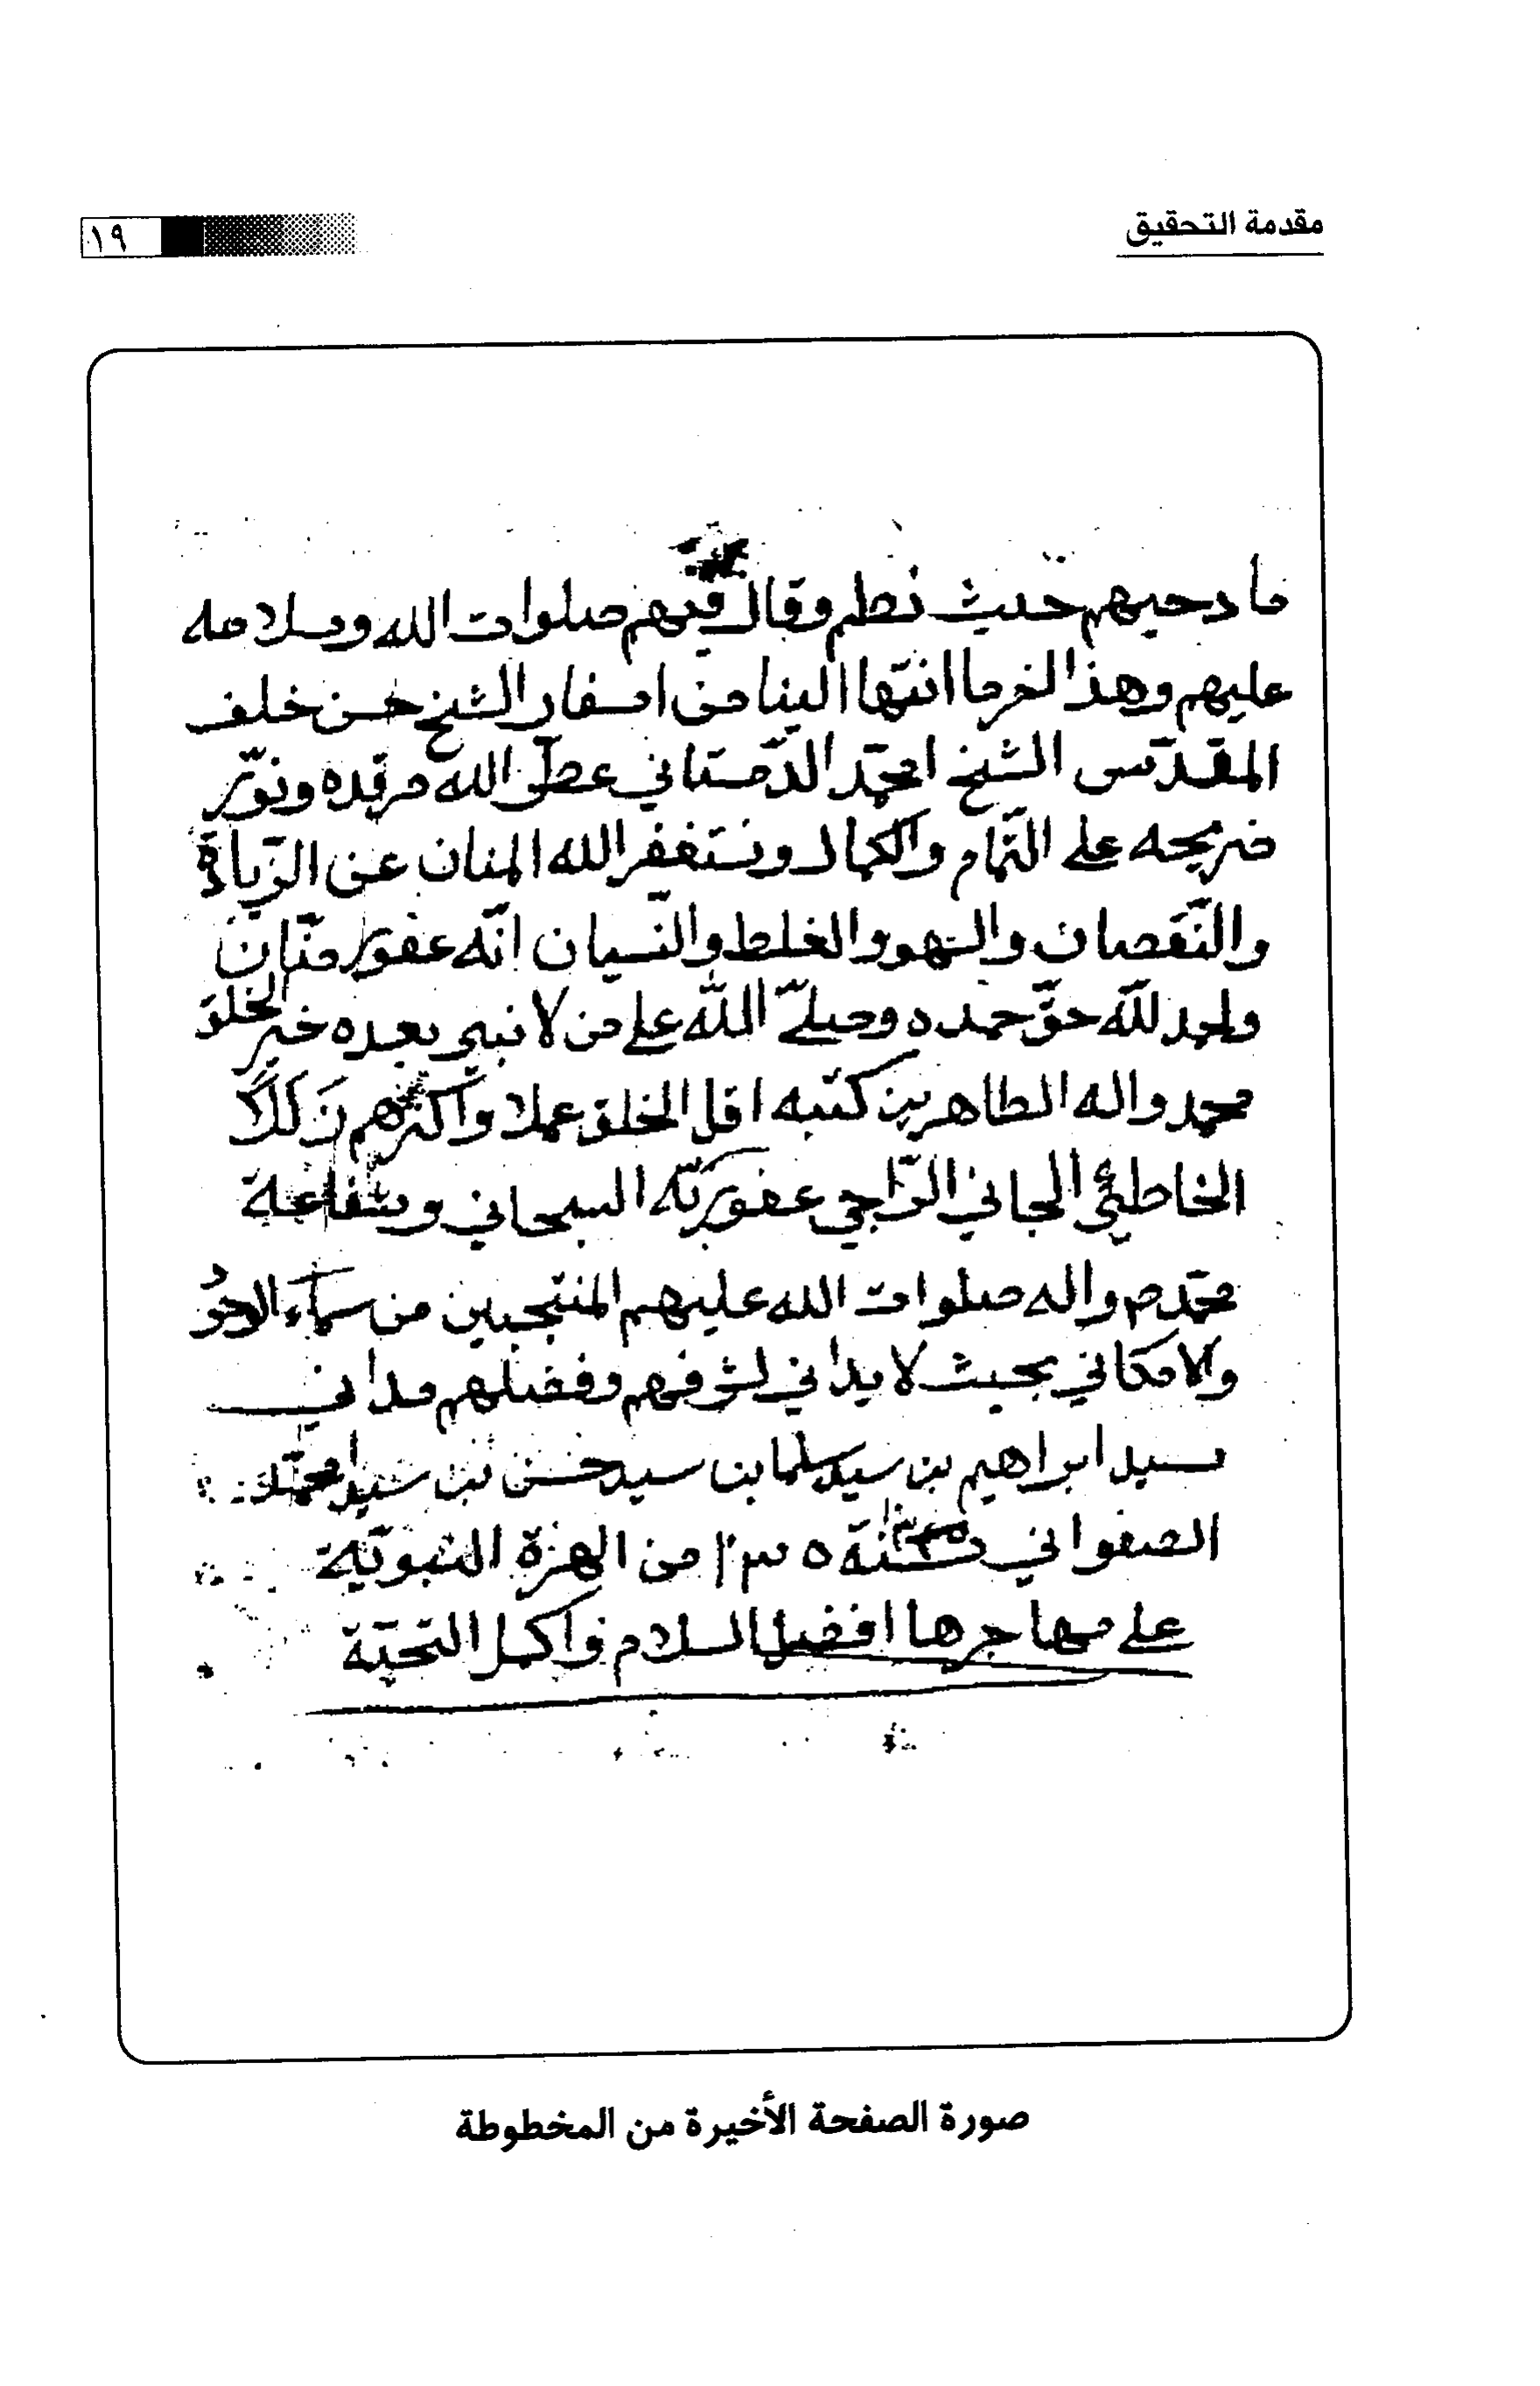 مقدمة التحقيق
١٩
مادحيهم حيث نظم وقال فيهم صلوات الله وسلامه
عليهم وهذا اخر ما انتها الينا من اسفار الشيخ حسن خلف
المقدّس الشيخ امحمّد الدّمستاني عطّر الله مرقده ونوّر
ضريحه على التّمام والكمال ونستغفر الله المنان عن الزّيادة
والنّقصان والسّهو والغلط والنّسيان انّه غفور منّان
والحمد للّه حقّ حمده وصلّى اللّه على من لا نبي بعده خير الخلق
محمد واله الطاهرين كتبه اقل الخلق عملا واكثرهم زَلَلًا
الخاطئ الجاني الرّاجي عفو ربّه السبحاني وشفاعة
محمّد ص واله صلوات الله عليهم المنتجبين من سماء
والامكاني بحيث لا يداني لشرفهم وفضلهم مداني
سيد ابراهيم بن سيد سلمان بن سيد حسن بن سيد امحمّد
الصفواني سنة ١٣٣٥ من الهجرة النبويّة
على مهاجرها افضل السلام واكمل التحيّة
صورة الصفحة الأخيرة من المخطوطة